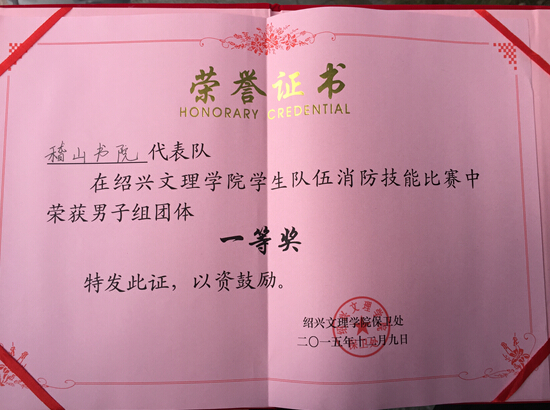 荣誉证书
HONORARY CREDENTIAL
稽山书院 代表队
在绍兴文理学院学生队伍消防技能比赛中
荣获男子组团体
一等奖
特发此证，以资鼓励。
绍兴文理学院保卫处
二〇一五年十一月九日